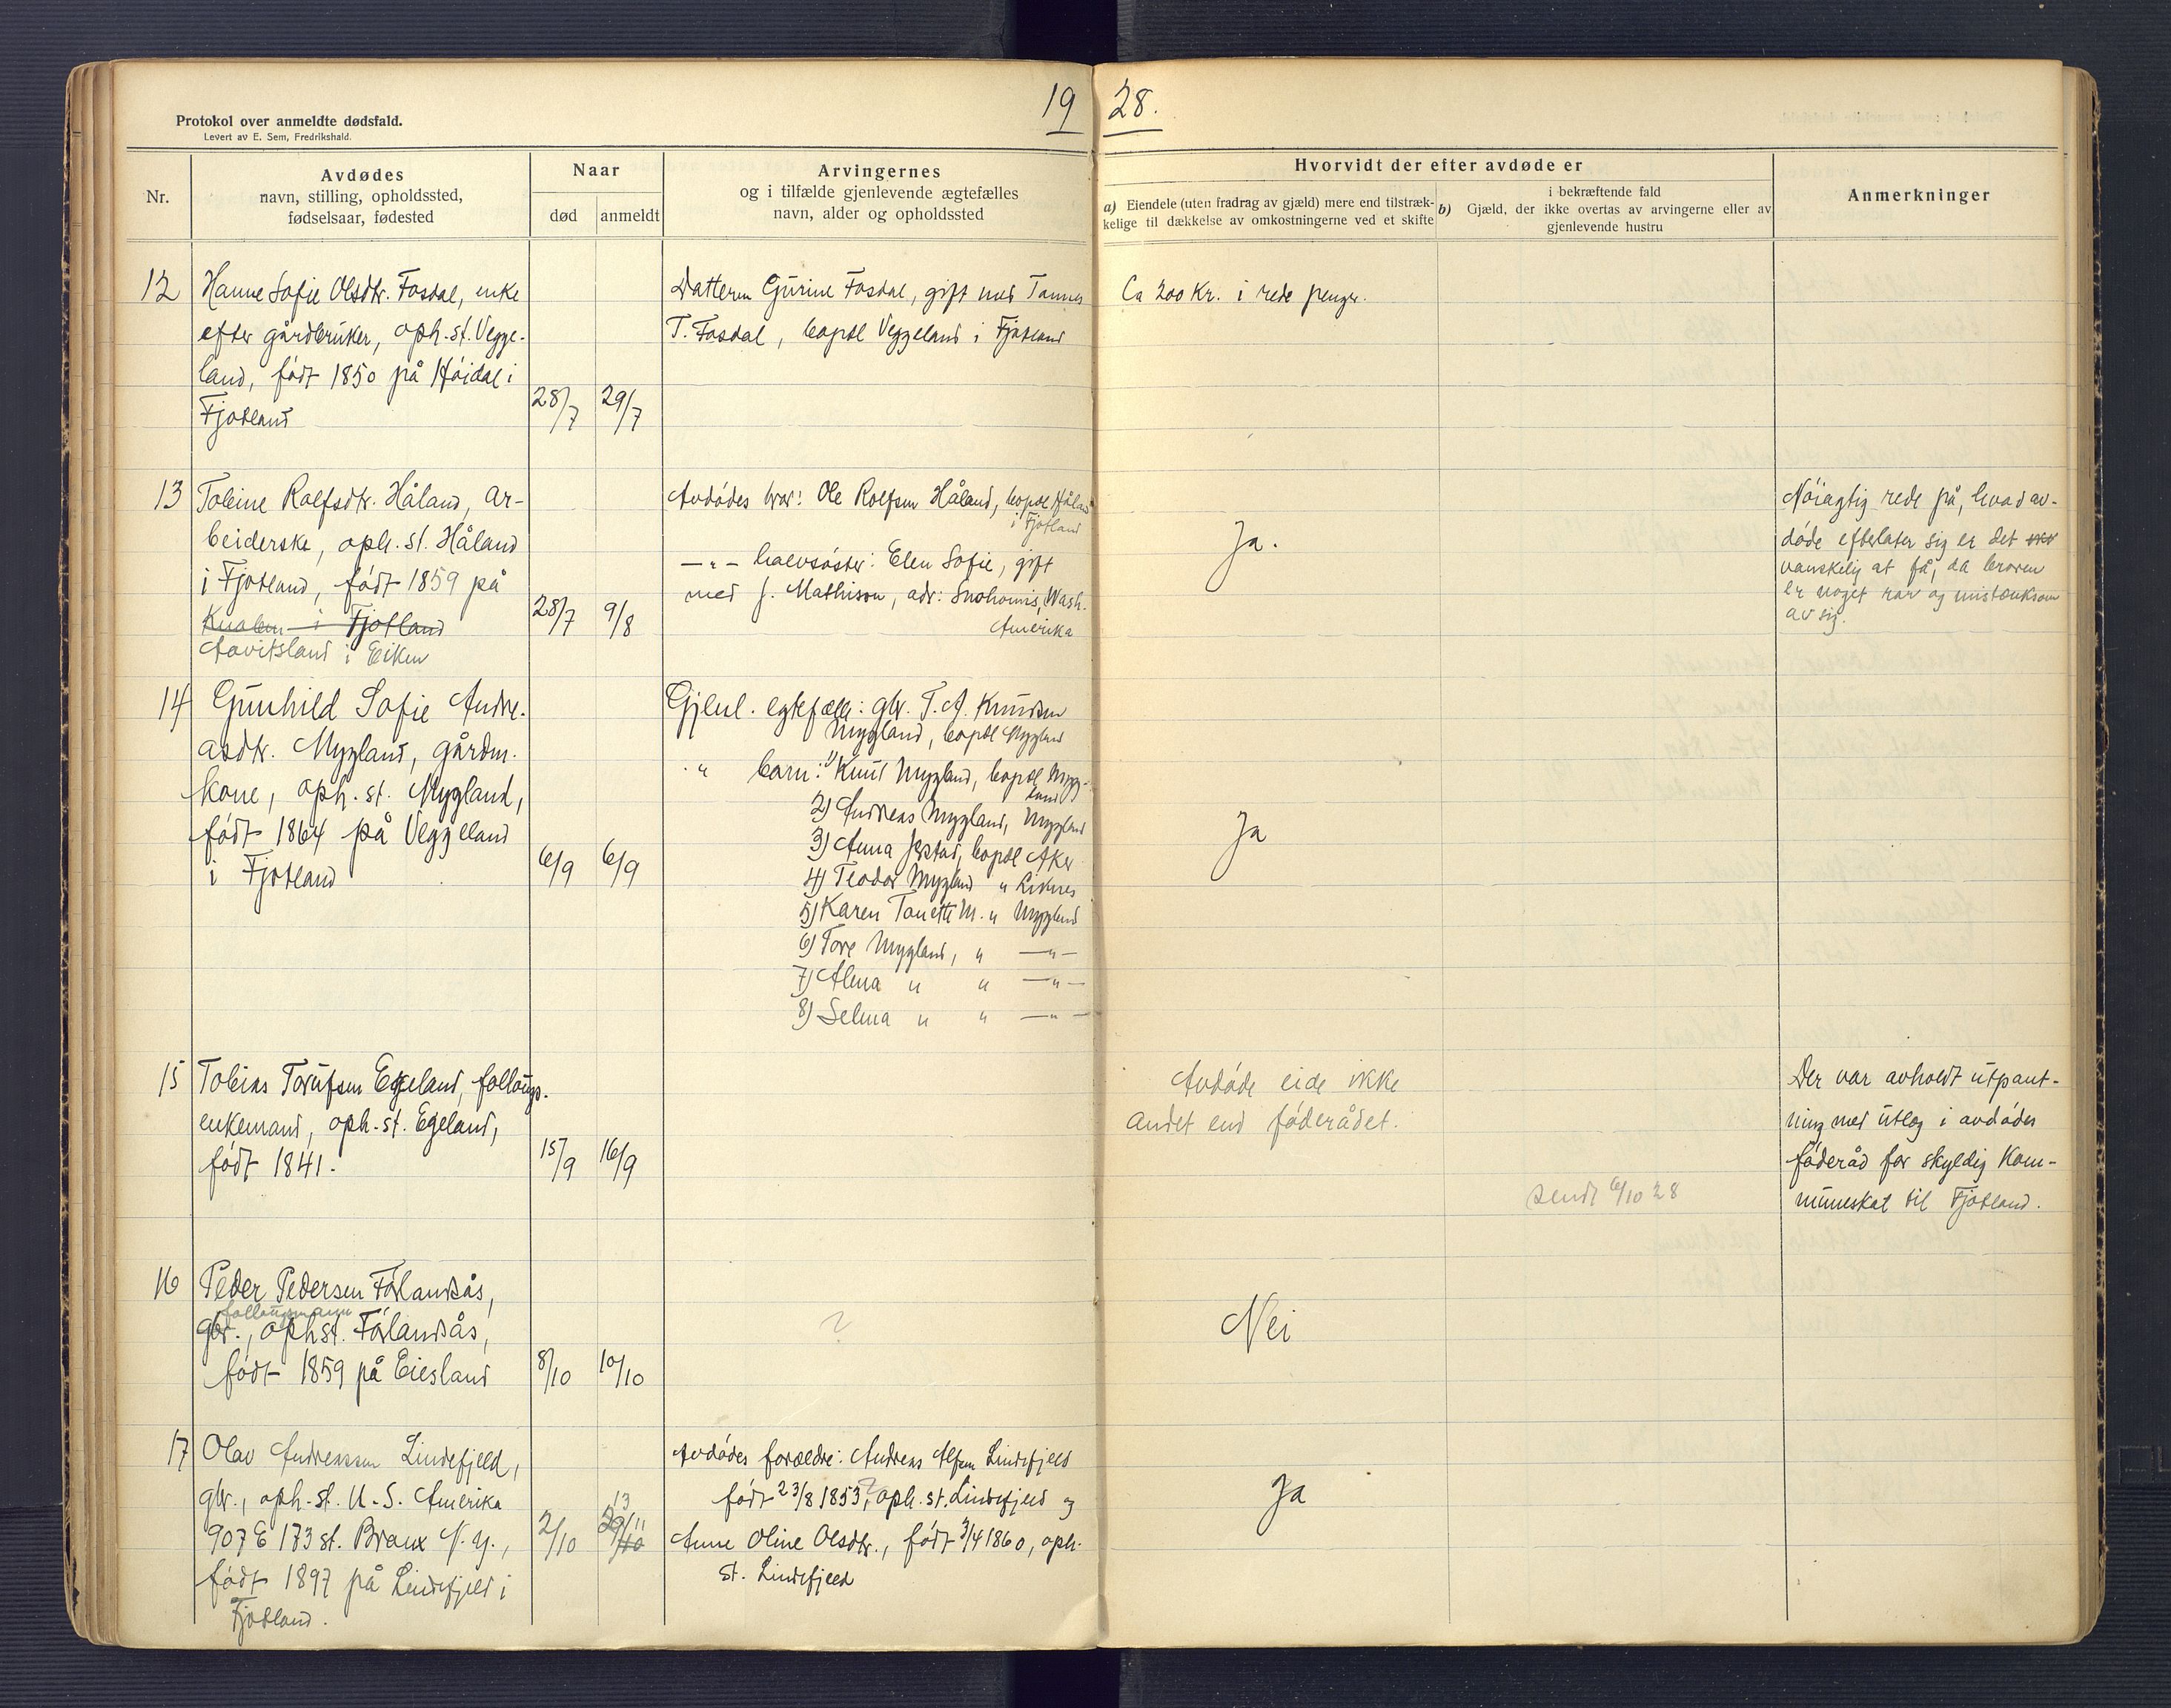 Protokol over anmeldte dødsfald.
Levert av E. Sem, Fredrikshald.
19 28.
Nr.
Avdødes
navn, stilling, opholdssted,
fødselsaar, fødested
Naar
død
anmeldt
Arvingernes
og i tilfælde gjenlevende ægtefælles
navn, alder og opholdssted
Hvorvidt der efter avdøde er
a) Eiendele (uten fradrag av gjæld) mere end tilstræk-
kelige til dækkelse av omkostningerne ved et skifte
b) i bekræftende fald
Gjæld, der ikke overtas av arvingerne eller av
gjenlevende hustru
Anmerkninger
12
Hanne Sofie Olsdtr. Fosdal, enke
efter gårdbruker, oph.st. Vegge-
land, født 1850 på Høidal i
Fjotland
28/7
29/7
Datteren Gurine Fosdal, gift med Tønnes
T. Fosdal, bopæl Veggeland i Fjotland
Ca 200 Kr. i rede penger.
13
Tobine Rolfsdtr. Håland, ar-
beiderske, oph.st. Håland
i Fjotland, født 1859 på
Knaben i Fjotland
Aavitsland i Eiken
28/7
9/8
Avdødes bror: Ole Rolfsen Håland, bopæl Håland
i Fjotland
— " — halvsøster: Elen Sofie, gift
med J. Mathison, adr: Snohomis, Wash.
Amerika
Ja.
Nøiagtig rede på, hvad av-
døde efterlater sig er det
vanskelig at få, da broren
er noget rar og mistænksom
av sig.
14
Gunhild Sofie Andre-
asdtr. Mygland, gårdm.
kone, oph. st. Mygland,
født 1864 på Veggeland
i Fjotland
6/9
6/9
Gjenl. egtefælle: gbr. T. A. Knudsen
Mygland, bopæl Mygland
" barn: 1) Knut Mygland, bopæl Myg-
land
2) Andreas Mygland, Mygland
3) Anna Jerstad, bopæl Aker
4) Teodor Mygland " Liknes
5) Karen Tonette M. " Mygland
6) Tore Mygland, " — " —
7) Alma " " — " —
8) Selma " " — " —
Ja
15
Tobias Torufsen Egeland, follaugs-
enkemand, oph.st. Egeland,
født 1841.
15/9
16/9
Avdøde eide ikke
andet end føderådet.
sendt 6/10 28
Der var avholdt utpant-
ning med utlæg i avdødes
føderåd for skyldig Kom-
muneskat til Fjotland.
16
Peder Pedersen Førlandsås,
follaugsmann
gbr., oph.st. Førlandsås,
født 1859 på Eiesland
8/10
10/10
?
Nei
17
Olav Andreassen Lindefjeld,
gbr., oph.st. U.S. Amerika
907 E 173 st. Bronx N.Y.,
født 1897 på Lindefjeld i
Fjotland.
2/10
13
/11
Avdødes forældre: Andreas Alfsen Lindefjeld
født 23/8 1853?, oph.st. Lindefjeld og
Anne Oline Olsdtr., født 3/4 1860, oph.
st. Lindefjeld
Ja